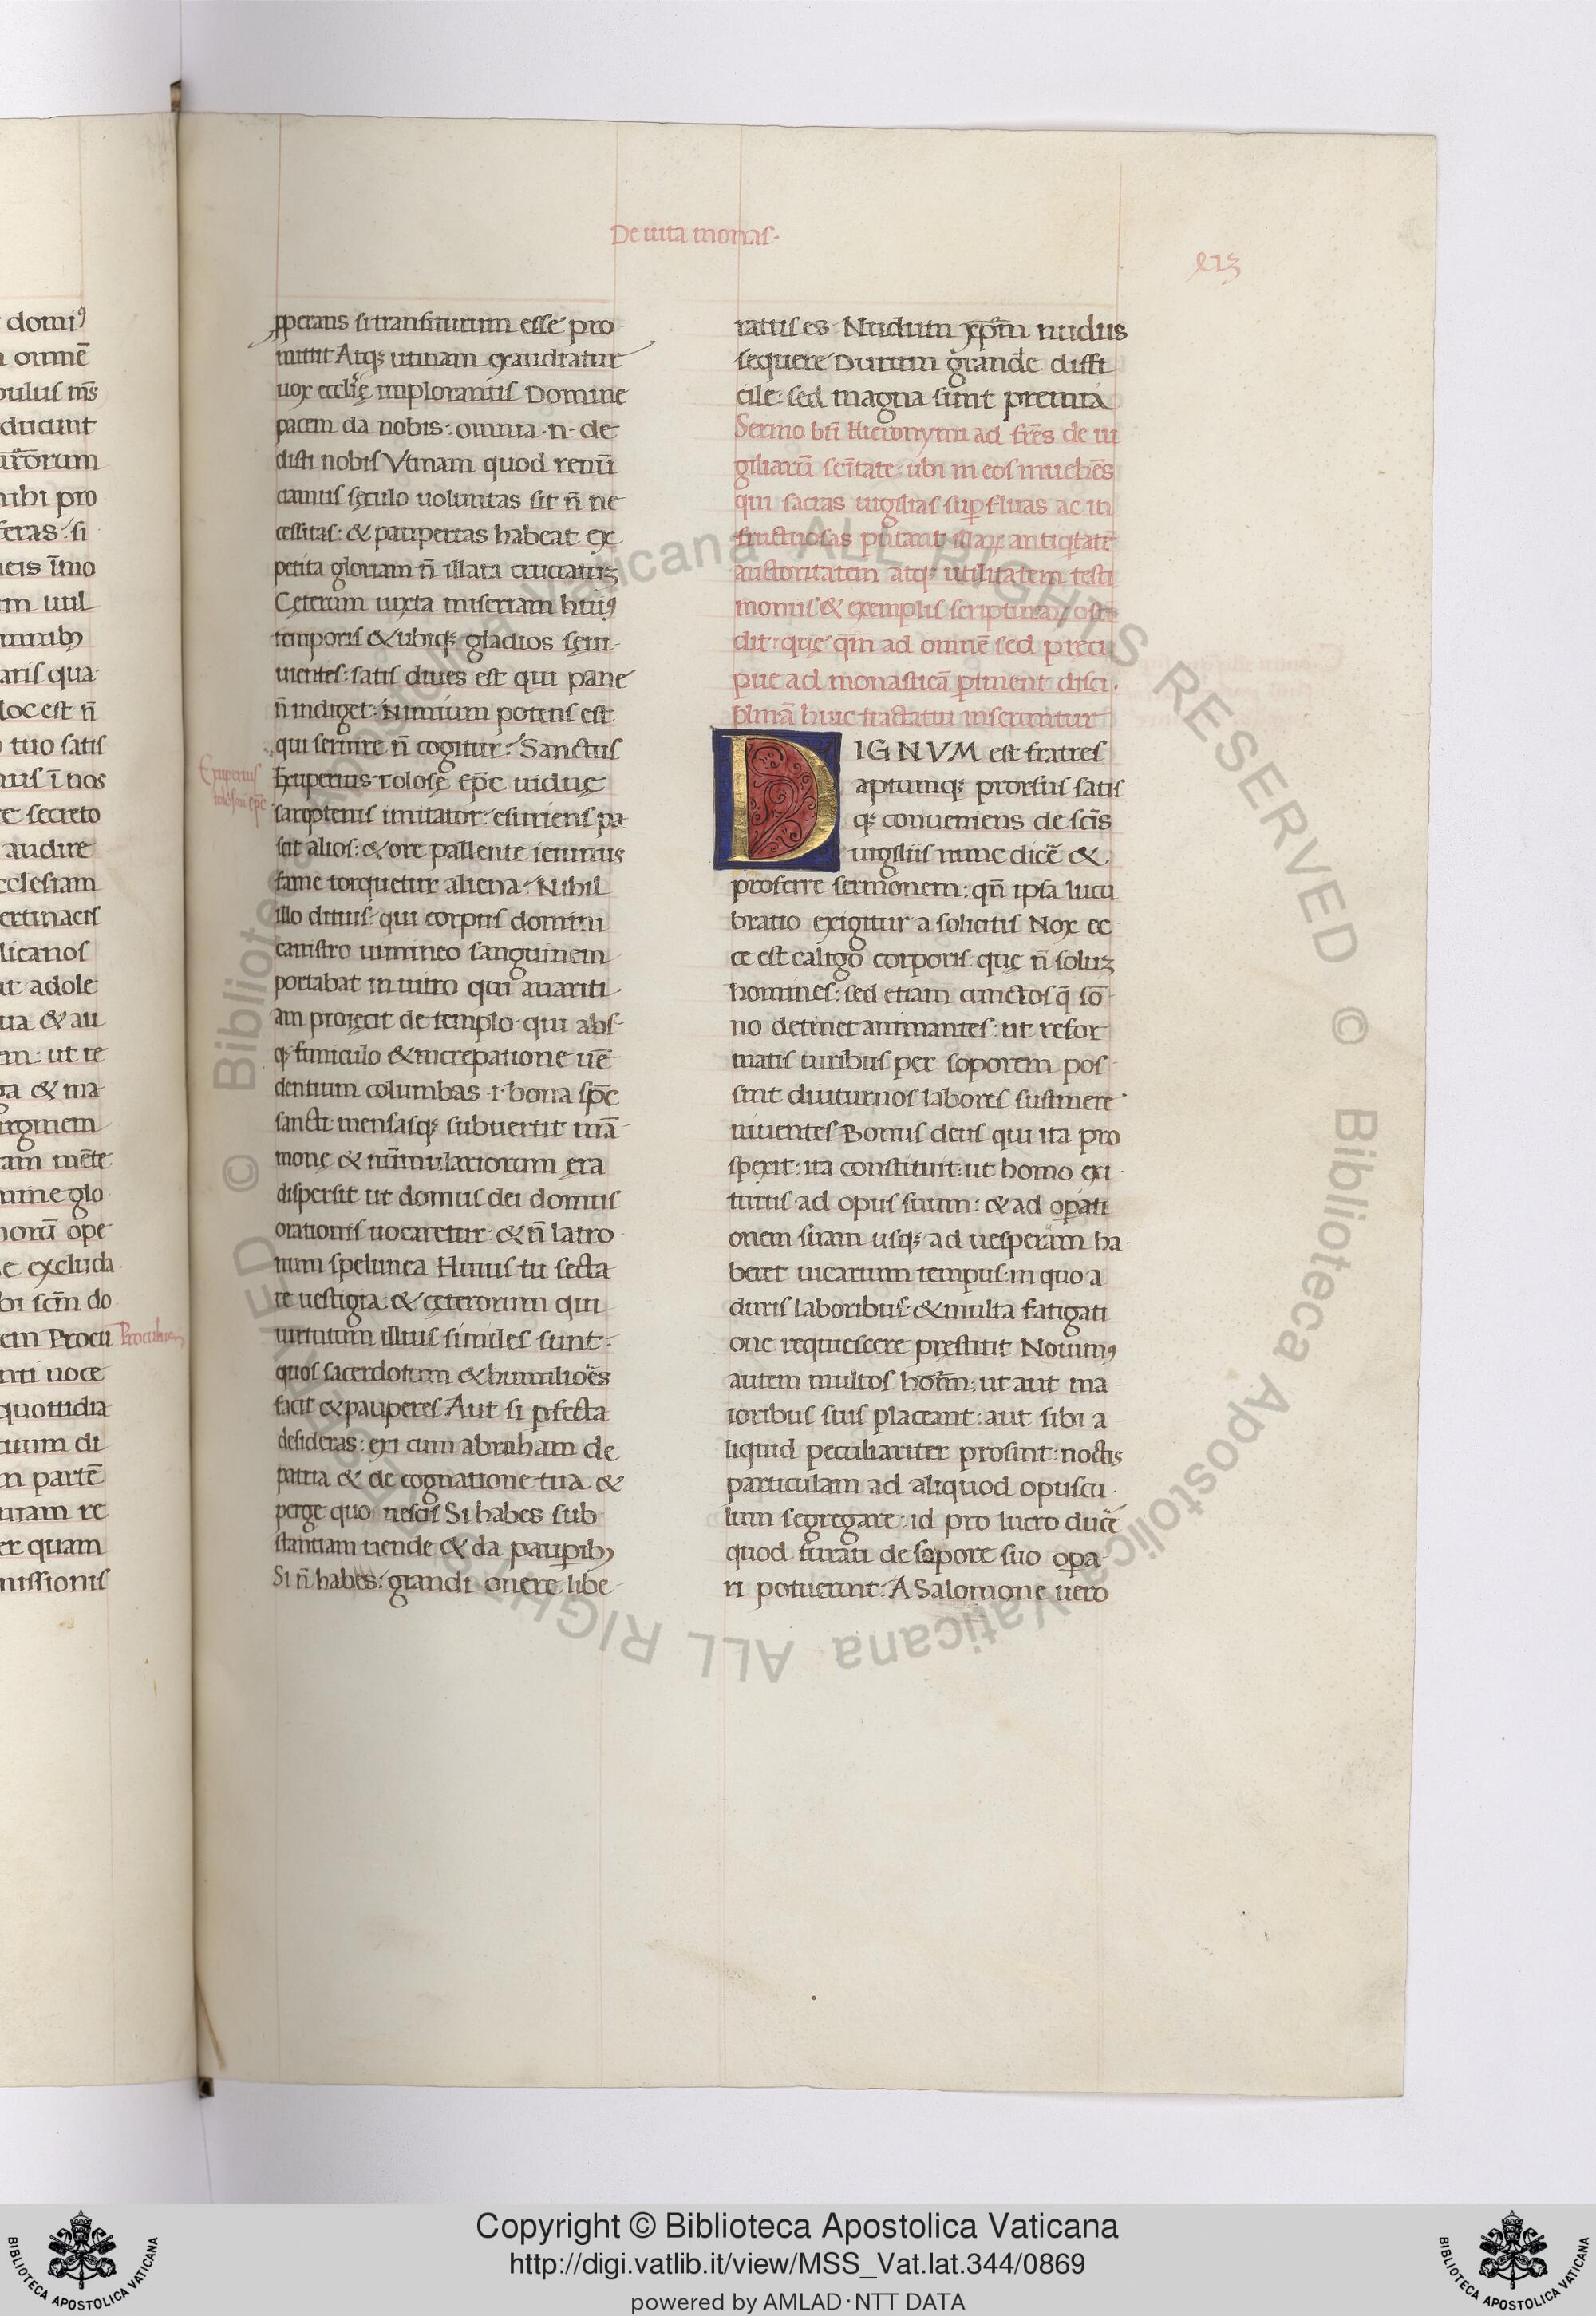 De uita monas·
413
domiꝰ
omnē
pulus m̄s
ducunt
ihi pro
feras: si
neis īmo
em uul
aris qua
loc est n̄
tuo satis
nus ī nos
re secreto
audire
cclesiam
ertinacis
licanos
ut adole
ua & au
em: ut re
ga & ma
irginem
am mēte
mine glo
norū ope
e excluda
bi scm̄ do
em Procu
Proculum
nti uoce
quottidia
tuum di
m partē
uram re
er quam
missionis
Exuperius
tolosan' ep̄c
ꝓperans si transiturum esse pro
mittit Atqꝫ utinam exaudiatur
uox eccl'ię implorantis Domine
pacem da nobis: omnia ·n· de
disti nobis Vtinam quod renū
ciamus sęculo uoluntas sit n̄ ne
cessitas: & paupertas habeat ex
petita gloriam n̄ illata cruciatuꝫ
Cęterum iuxta miseriam huiꝰ
temporis & ubiqꝫ gladios sęui
uientes: satis diues est qui pane
n̄ indiget: Nimium potens est
qui seruire n̄ cogitur: Sanctus
Exuperius tolosę ep̄c uiduę
sareptenis imitator: esuriens pa
scit alios: & ore pallente ieiuniis
fame torquetur aliena: Nihil
illo ditius· qui corpus domini
canistro uimineo sanguinem
portabat in uitro qui auariti
am proiecit de templo· qui abs
qꝫ funiculo & increpatione uē
dentium columbas ·i· bona sp̄c
sancti: mensasqꝫ subuertit mā
monę & nūmulariorum ęra
dispersit ut domus dei domus
orationis uocaretur: & n̄ latro
num spelunca Huius tu secta
re uestigia: & ceterorum qui
uirtutum illius similes sunt:
quos sacerdotum & humiliōēs
facit & pauperes Aut si ꝑfecta
desideras: exi cum abraham de
patria & de cognatione tua &
perge quo nescis Si habes sub
stantiam uende & da pauꝑibꝰ
Si n̄ habes: grandi onere libe
ratus es· Nudum xp̄m nudus
sequere Durum grande diffi
cile: sed magna sunt premia
Sermo bt̄i Hieronymi ad fr̄es de ui
giliarū sc̄itate: ubi in eos inuehēs
qui sacras uigilias suꝑfluas ac in
fructuosas putant illaꝝ antiqͥtatē
auctoritatem atqꝫ utilitatem testi
moniis & exemplis scripturaꝝ osten
dit: que qm̄ ad omnē sed preci
pue ad monasticā ꝑtinent disci
plinā huic tractatui inseruntur
DIGNVM est fratres
aptumqꝫ prorsus satis
qꝫ conueniens de sc̄is
uigiliis nunc dicē &
proferre sermonem: qn̄ ipsa lucu
bratio exigitur a solicitis Nox ec
ce est caligo corporis· que n̄ soluꝫ
homines: sed etiam cunctos q̄ sō
no detinet animantes: ut refor
matis uiribus per soporem pos
sint diuturnos labores sustinere
uiuentes Bonus deus qui ita pro
spexit: ita constituit: ut homo exi
turus ad opus suum: & ad oꝑati
onem suam usqꝫ ad uesperam ha
beret uicarium tempus: in quo a
duris laboribus: & multa fatigati
one requiescere prestitit Nouimꝰ
autem multos hoīm: ut aut ma
ioribus suis placeant: aut sibi a
liquid peculiariter prosint: noctis
particulam ad aliquod opuscu
lum segregare: id pro lucro ducē
quod furati de sopore suo oꝑa
ri potuerunt: A Salomone uero
Copyright © Biblioteca Apostolica Vaticana
http://digi.vatlib.it/view/MSS_Vat.lat.344/0869
powered by AMLAD·NTT DATA
BIBLIOTECA APOSTOLICA VATICANA
BIBLIOTECA APOSTOLICA VATICANA
© Biblioteca Apostolica Vaticana ALL RIGHTS RESERVED © Biblioteca Apostolica Vaticana ALL RIGHTS RESERVED